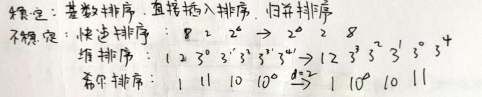 稳定：基数排序．直接插入排序．归并排序
不稳定：快速排序：8 2 2⁰ → 2⁰ 2 8
堆排序：1 2 3⁰ 3¹ 3² 3³ 3⁴ → 1 2 3³ 3² 3¹ 3⁰ 3⁴
希尔排序：1 11 10 10⁰ d=2→ 1 10⁰ 10 11